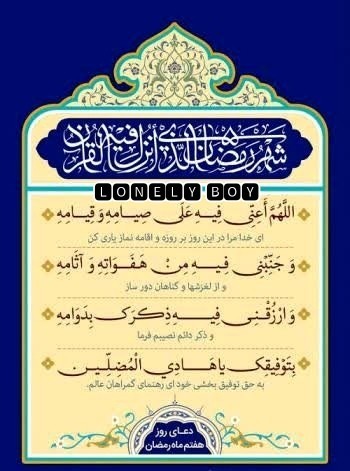 شهر رمضان الذي أنزل فيه القرآن
LONELY BOY
اللَّهُمَّ أَعِنِّی فِیهِ عَلَی صِیَامِهِ وَ قِیَامِهِ
ای خدا مرا در این روز بر روزه و اقامه نماز یاری کن
وَ جَنِّبْنِی فِیهِ مِنْ هَفَوَاتِهِ وَ آثَامِهِ
و از لغزشها و گناهان دور ساز
وَ ارْزُقْنِی فِیهِ ذِکْرَکَ بِدَوَامِهِ
و ذکر دائم نصیبم فرما
بِتَوْفِیقِکَ یَا هَادِیَ الْمُضِلِّینَ
به حق توفیق بخشی خود ای رهنمای گمراهان عالم.
دعای روز
هفتم ماه رمضان